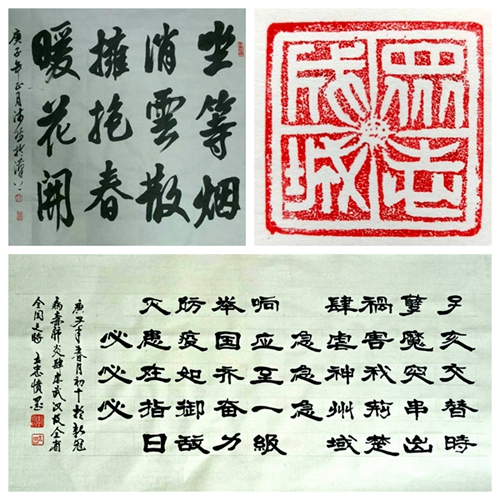 坐等烟
消雲散
擁抱春
暖花開
庚子年正月
眾志
成城
子亥交替時
孽魔突串出
祸害我荊楚
肆虐神州域
响应至一級
举国齐奋力
防疫如御敌
灭患在指日
必必必
庚子年春月初十於新冠
病毒肺炎肆虐武汉及全省
全国之時